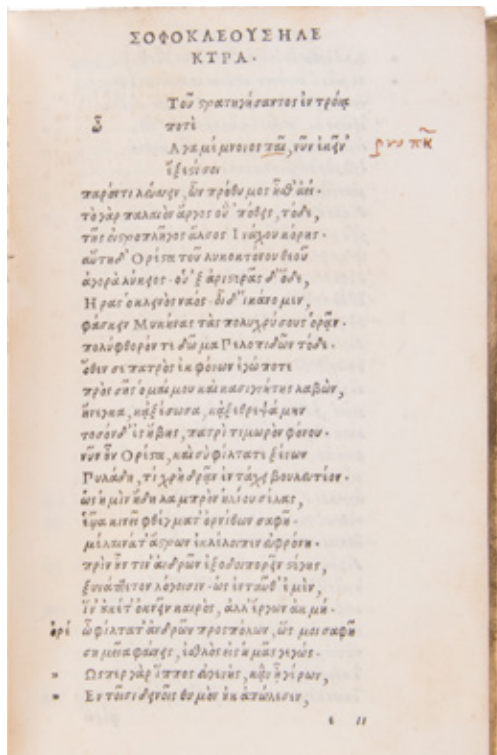 ΣΟΦΟΚΛΕΟΥΣ ΗΛΕ
ΚΤΡΑ.
Τοῦ στρατηγήσαντος ἐν τροίᾳ
ποτὲ
Αγαμέμνονος παῖ, νῦν ἐκεῖν'
ἔξεστί σοι
παρόντι λεύσσειν, ὧν πρόθυμος ἦσθ' ἀεί.
τὸ γὰρ παλαιὸν ἄργος οὑπόθεις, τόδε,
τῆς οἰστροπλῆγος ἄλσος Ινάχου κόρης.
αὕτη δ' Ορέστα τοῦ λυκοκτόνου θεοῦ
ἀγορὰ λύκειος. οὑξ ἀριστερᾶς δ' ὅδε,
Ηρας ὁ κλεινὸς ναός. οἷ δ' ἱκάνομεν,
φάσκειν Μυκήνας τὰς πολυχρύσους ὁρᾶν.
πολύφθορόν τε δῶμα Πελοπιδῶν τόδε.
ὅθεν σε πατρὸς ἐκ φόνων ἐγώ ποτε
πρὸς σῆς ὁμαίμου καὶ κασιγνήτης λαβὼν,
ἤνεγκα, κἀξέσωσα, κἀξεθρεψάμην
τοσόνδ' ἐς ἥβης, πατρὶ τιμωρὸν φόνου.
νῦν οὖν Ορέστα, καὶ σὺ φίλτατε ξένων
Πυλάδη, τί χρὴ δρᾶν ἐν τάχει βουλευτέον.
ὡς ἡμὶν ἤδη λαμπρὸν ἡλίου σέλας,
ἑῷα κινεῖ φθέγματ' ὀρνίθων σαφῆ.
μέλαινά τ' ἄστρων ἐκλέλοιπεν εὐφρόνη.
πρὶν οὖν τιν' ἀνδρῶν ἐξοδοιπορεῖν στέγης,
ξυνάπτετον λόγοισιν. ὡς ἐνταῦθ' ἐμὲν,
ἵν' οὐκέτ' ὀκνεῖν καιρὸς, ἀλλ' ἔργων ἀκμή.
ὀρέ ὦ φίλτατ' ἀνδρῶν προσπόλων, ὥς μοι σαφῆ
σημεῖα φαίνεις, ἐσθλὸς εἰς ἡμᾶς γεγώς.
" Ωσπερ γὰρ ἵππος εὐγενὴς, κἂν ᾖ γέρων,
" Εν τοῖσι δεινοῖς θυμὸν οὐκ ἀπώλεσεν,